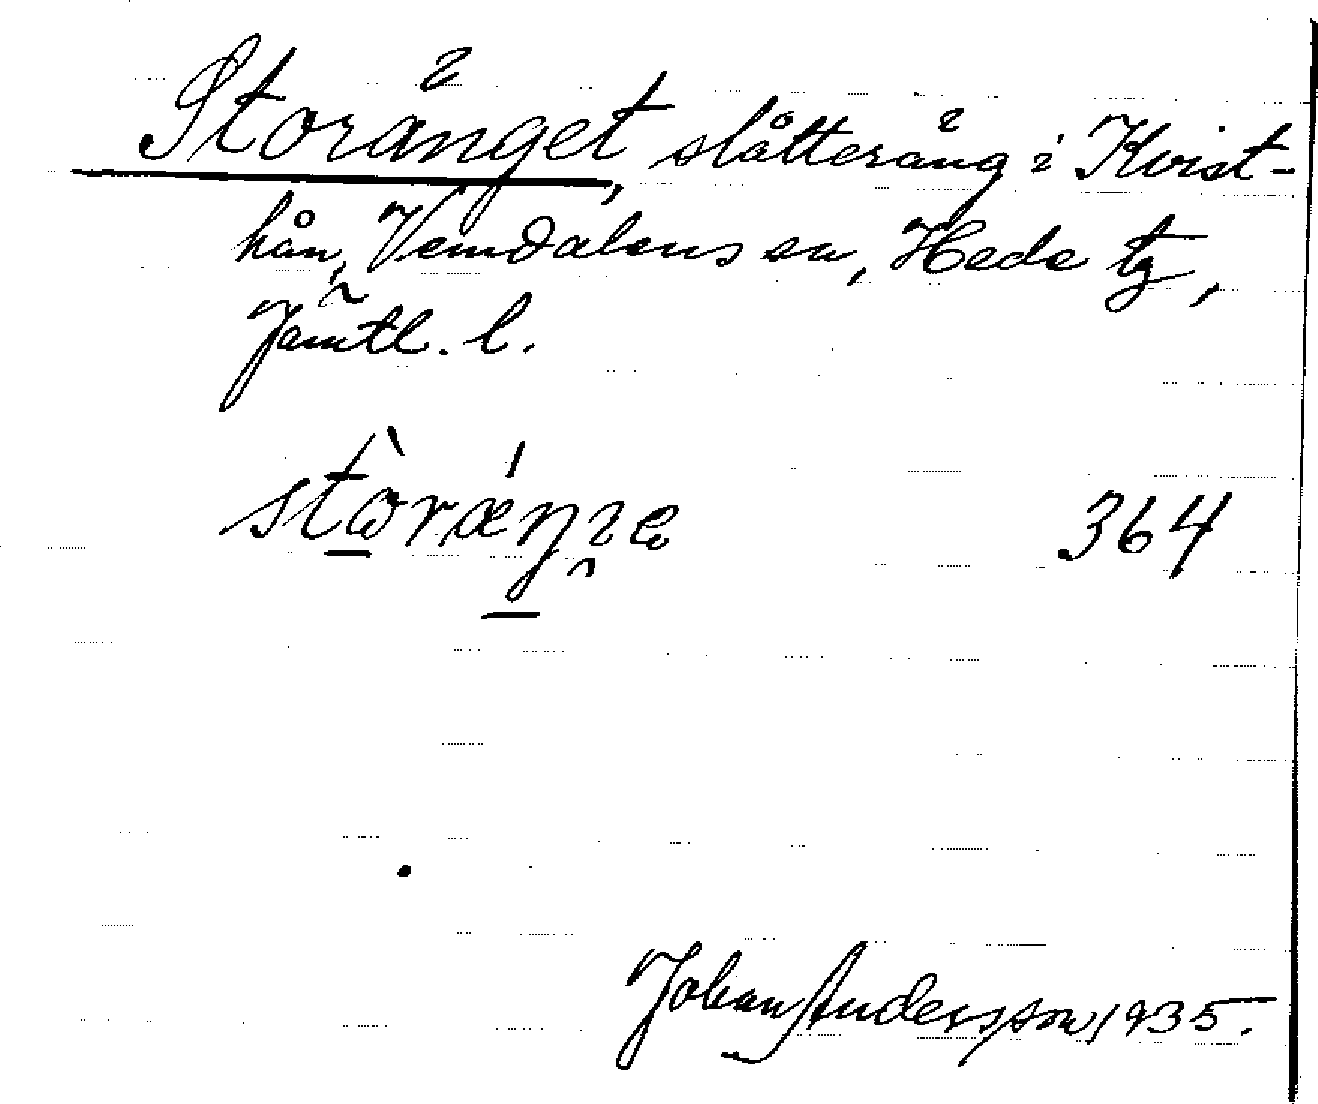 Storänget, slåtteräng i Kvist-
hån, Vemdalens sn, Hede tg,
Jämtl. l.
364
Johan Andersson 1935.